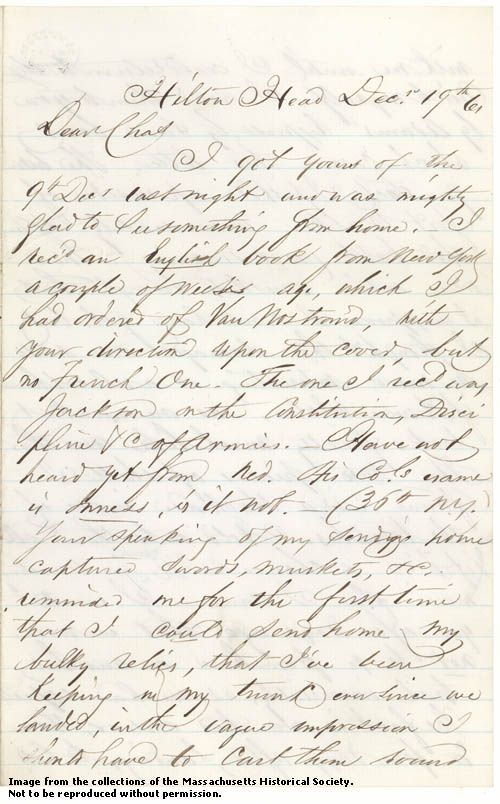 Hilton Head Dec.r 19th 61
Dear Chas
I got yours of the
9th Decr last night and was mighty
glad to see something from home. — I
rec'd an English book from New York
a couple of weeks ago, which I
had ordered of Van Nostrand, with
your direction upon the cover, but
no French One. The one I rec'd was
Jackson on the Constitution, Disci
pline &c of Armies. — Have not
heard yet from Ned. His Col.s name
is Inness, is it not. — (36th N.Y.)
Your speaking of my sending home
captured swords, muskets, &c.
reminded me for the first time
that I could send home my
bulky relics, that I've been
keeping in my trunk ever since we
landed, in the vague impression I
should have to cart them round
Image from the collections of the Massachusetts Historical Society.
Not to be reproduced without permission.